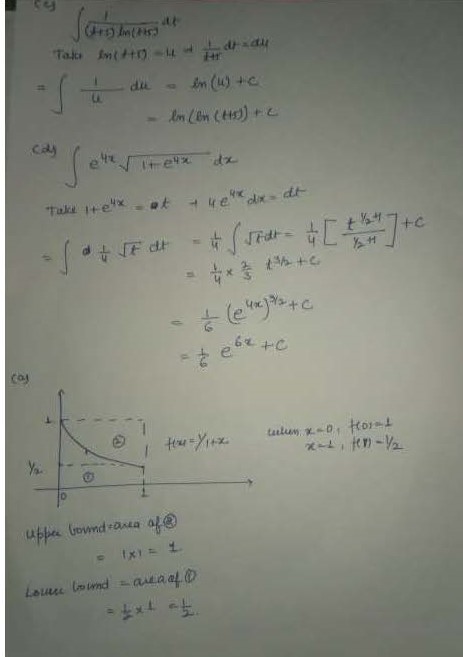 (c)
∫ 1/((t+5) ln(t+5)) dt
Take ln(t+5) = u → 1/(t+5) dt = du
= ∫ 1/u du = ln(u) + c
= ln(ln(t+5)) + c
(d) ∫ e^{4x} √(1+e^{4x}) dx
Take 1+e^{4x} = t → 4e^{4x} dx = dt
= ∫ 1/4 √t dt = 1/4 ∫ √t dt = 1/4 [ t^{1/2+1} / (1/2+1) ] + C
= 1/4 × 2/3 t^{3/2} + C
= 1/6 (e^{4x})^{3/2} + C
= 1/6 e^{6x} + C
(a)
1
② f(x) = 1/1+x when x=0, f(0)=1
x=1, f(1)=1/2
1/2
①
0 1
Upper bound = area of ②
= 1×1 = 1
Lower bound = area of ①
= 1/2 × 1 = 1/2.